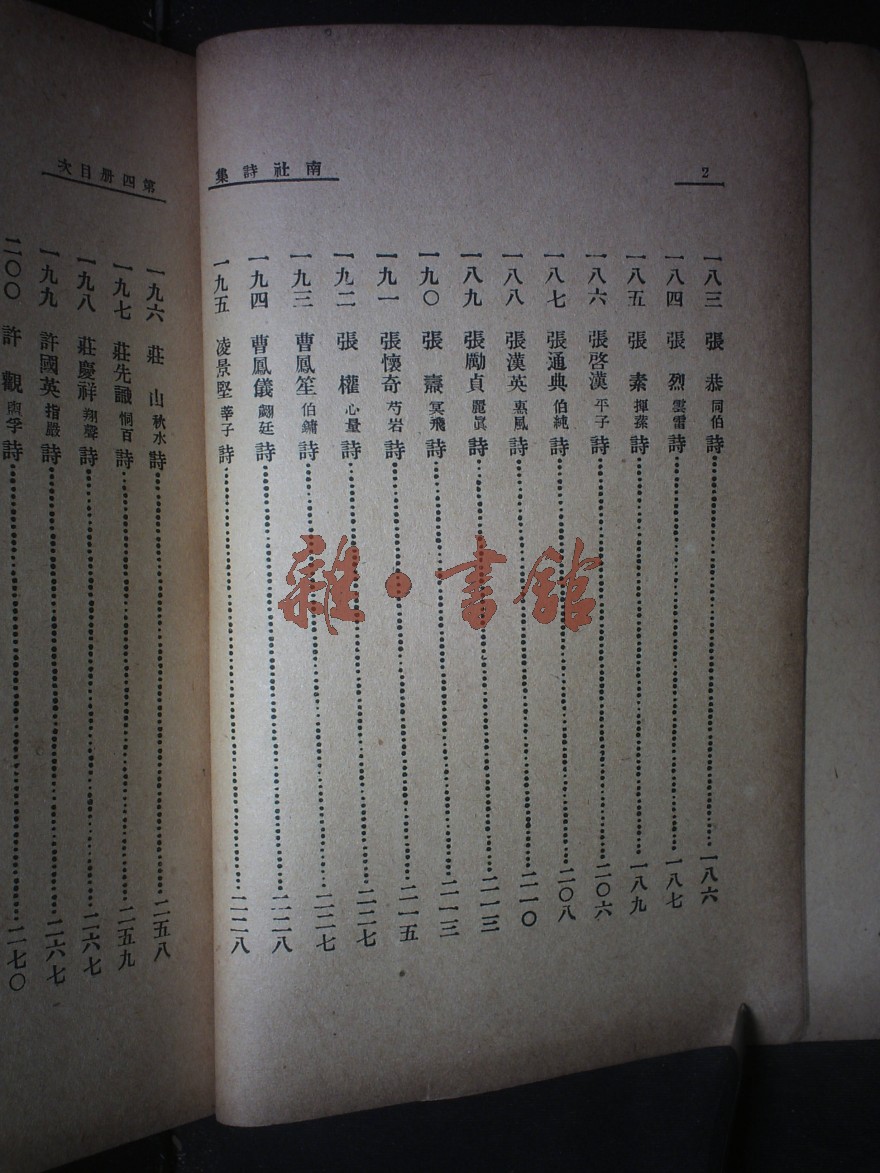 2
南社詩集
一八三 張恭 同伯 詩 一八六
一八四 張烈 雲雷 詩 一八七
一八五 張素 揮蓀 詩 一八九
一八六 張啓漢 平子 詩 二〇六
一八七 張通典 伯純 詩 二〇八
一八八 張漢英 惠風 詩 二一〇
一八九 張勵貞 麗眞 詩 二一三
一九〇 張燾 冥飛 詩 二一三
一九一 張懷奇 芍岩 詩 二一五
一九二 張權 心量 詩 二二七
一九三 曹鳳笙 伯鏞 詩 二二七
一九四 曹鳳儀 翽廷 詩 二二八
一九五 凌景堅 莘子 詩 二二八
第四册目次
一九六 莊山 秋水 詩 二五八
一九七 莊先識 恫百 詩 二五九
一九八 莊慶祥 翔聲 詩 二六七
一九九 許國英 指嚴 詩 二六七
二〇〇 許觀 詩 二七〇
雜·書館